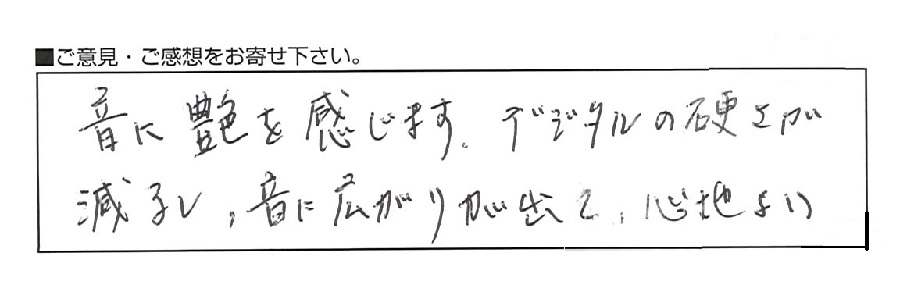 ■ご意見・ご感想をお寄せ下さい。
音に艶を感じます。デジタルの硬さが
減るし、音に広がりが出て、心地よい